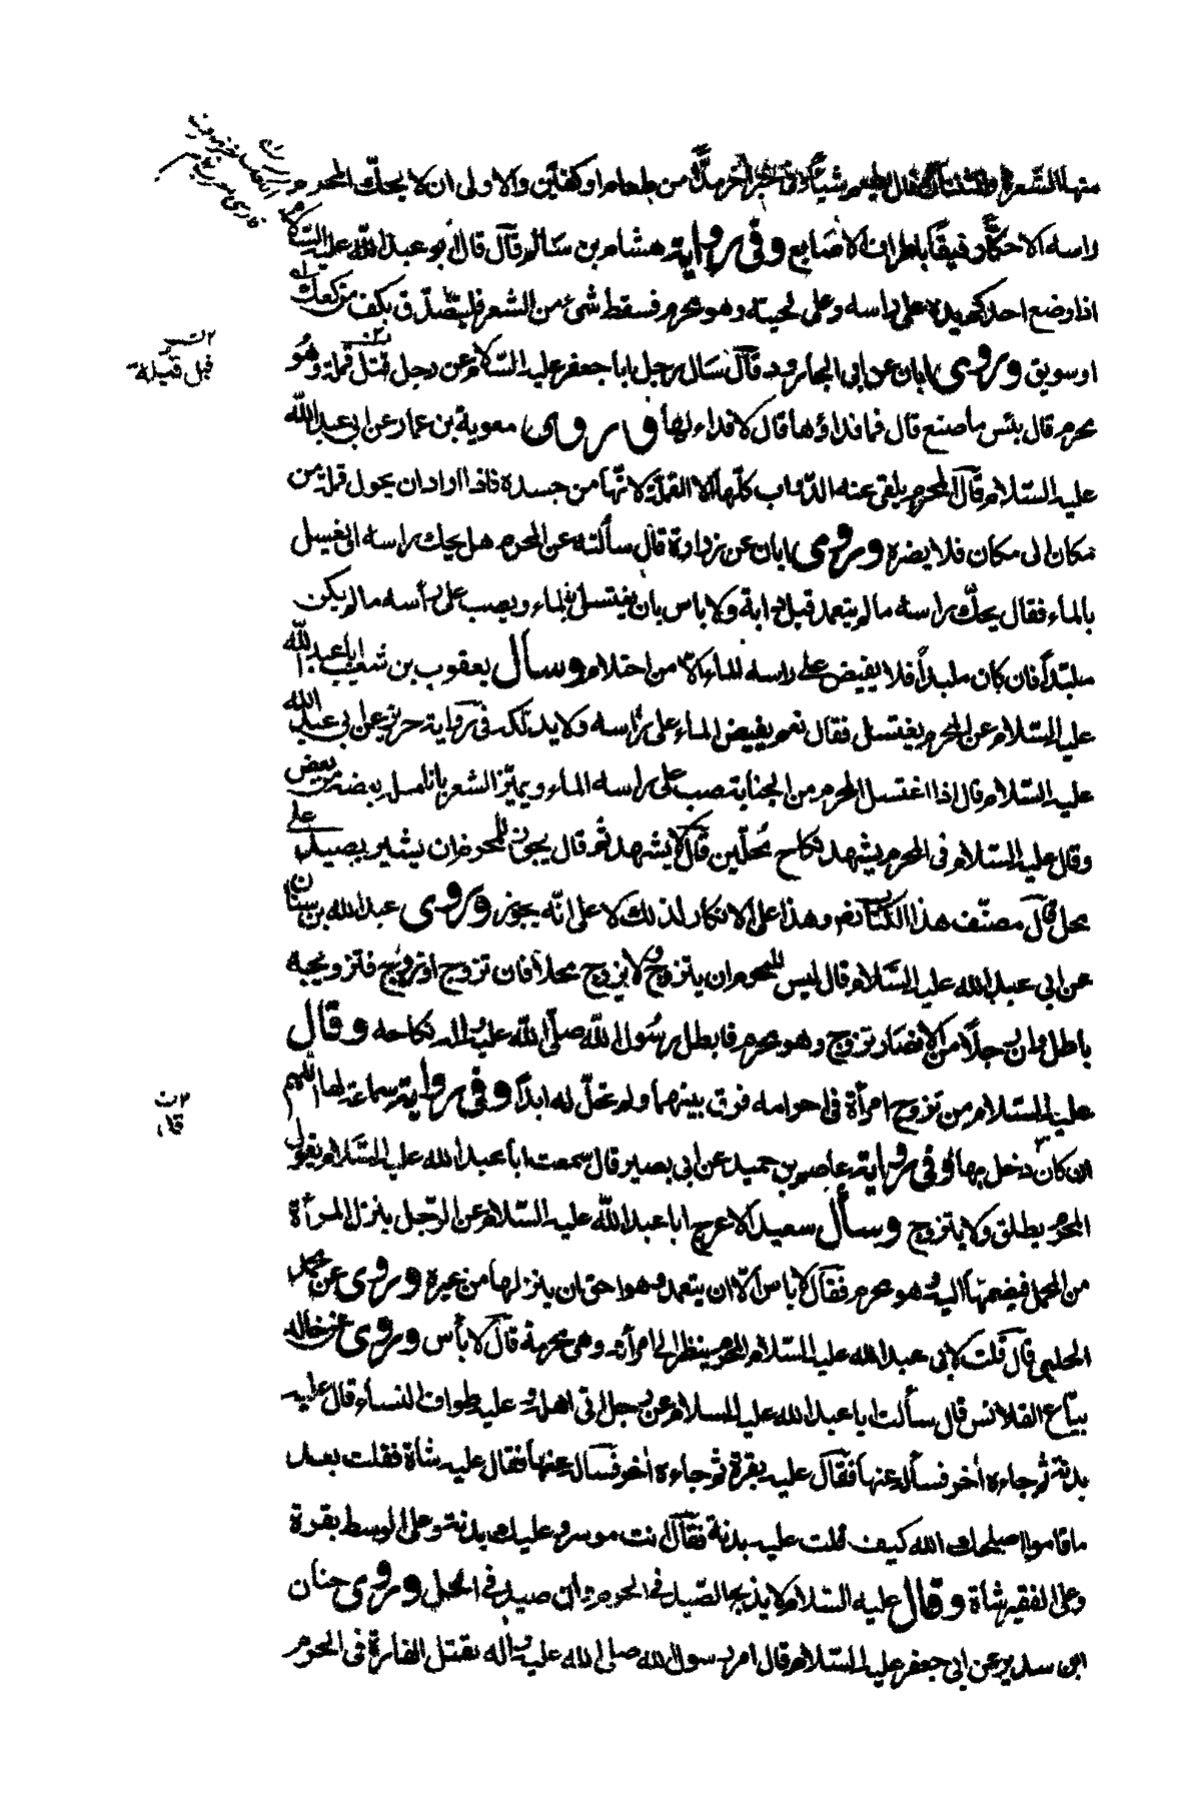 منها الشعرة والثنتان فقال يطعم شيئاً وفي خبر آخر مداً من طعام او كفين والاولى ان لا يحك المحرم
راسه الا حكاً رفيقاً باطراف الاصابع وفي رواية هشام بن سالم قال قال ابو عبد الله عليه السلام
اذا وضع احدكم يده على راسه وعلى لحيته وهو محرم فسقط شئ من الشعر فليتصدق بكف من كعك
او سويق وروى ابان عن ابي الجارود قال سال رجل ابا جعفر عليه السلام عن رجل قتل قملة وهو
محرم قال بئس ما صنع قال فما فداؤها قال لا فداء لها وروى معوية بن عمار عن ابي عبد الله
عليه السلام قال المحرم يلقى عنه الدواب كلها الا القملة لانها من جسده فاذا اراد ان يحول قملة من
مكان الى مكان فلا يضره وروى ابان عن زرارة قال سألته عن المحرم هل يحك راسه او يغسل
بالماء فقال يحك راسه ما لم يتعمد قتل دابة ولا باس بان يغتسل بالماء ويصب على رأسه ما لم يكن
ملبداً فان كان ملبداً فلا يفيض على راسه الماء الا من احتلام وسأل يعقوب بن شعيب ابا عبد الله
عليه السلام عن المحرم يغتسل فقال نعم يفيض الماء على راسه ولا يدلكه وفي رواية حريز عن ابي عبد الله
عليه السلام قال اذا اغتسل المحرم من الجنابة صب على راسه الماء ويميز الشعر بانامله بعضه من بعض
وقال عليه السلام في المحرم يشهد نكاح محلين قال لا يشهد ثم قال يجوز للمحرم ان يشير بصيد على
محل قال مصنف هذا الكتاب وهذا على الانكار لذلك لا على انه يجوز وروى عبد الله بن سنان
عن ابي عبد الله عليه السلام قال ليس للمحرم ان يتزوج ولا يزوج محلا فان تزوج او زوج فتزويجه
باطل وان رجلاً من الانصار تزوج وهو محرم فابطل رسول الله صلى الله عليه واله نكاحه وقال
عليه السلام من تزوج امرأة في احرامه فرق بينهما ولم تحل له ابداً وفي رواية سماعة لها المهر
ان كان دخل بها وفي رواية عاصم بن حميد عن ابي بصير قال سمعت ابا عبد الله عليه السلام يقول
المحرم يطلق ولا يتزوج وسأل سعيد الاعرج ابا عبد الله عليه السلام عن الرجل ينزل المرأة
من المحمل فيضمها اليه وهو محرم فقال لا باس الا ان يتعمد وهو احق ان ينزلها من غيره وروى عن محمد
الحلبي قال قلت لابي عبد الله عليه السلام المحرم ينظر الى امرأته وهي محرمة قال لا بأس وروى عن خالد
بياع القلانس قال سألت ابا عبد الله عليه السلام عن رجل اتى اهله وعليه طواف النساء قال عليه
بدنة ثم جاءه آخر فسأله عنها فقال عليه بقرة ثم جاءه آخر فسأله عنها فقال عليه شاة فقلت بعد
ما قاموا اصلحك الله كيف قلت عليه بدنة فقال انت موسر وعليك بدنة وعلى الوسط بقرة
وعلى الفقير شاة وقال عليه السلام لا يذبح الصيد في الحرم وان صيد في الحل وروى حنان
ابن سدير عن ابي جعفر عليه السلام قال امر رسول الله صلى الله عليه واله بقتل الفارة في الحرم